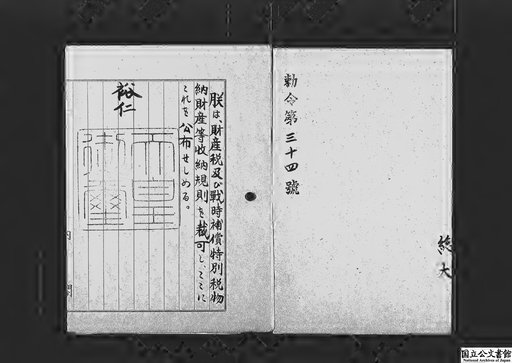 勅令第三十四號
総大
朕は、財産税及び戦時補償特別税物
納財産等收納規則を裁可し、ここに
これを公布せしめる。
裕仁
天皇
御璽
国立公文書館
National Archives of Japan